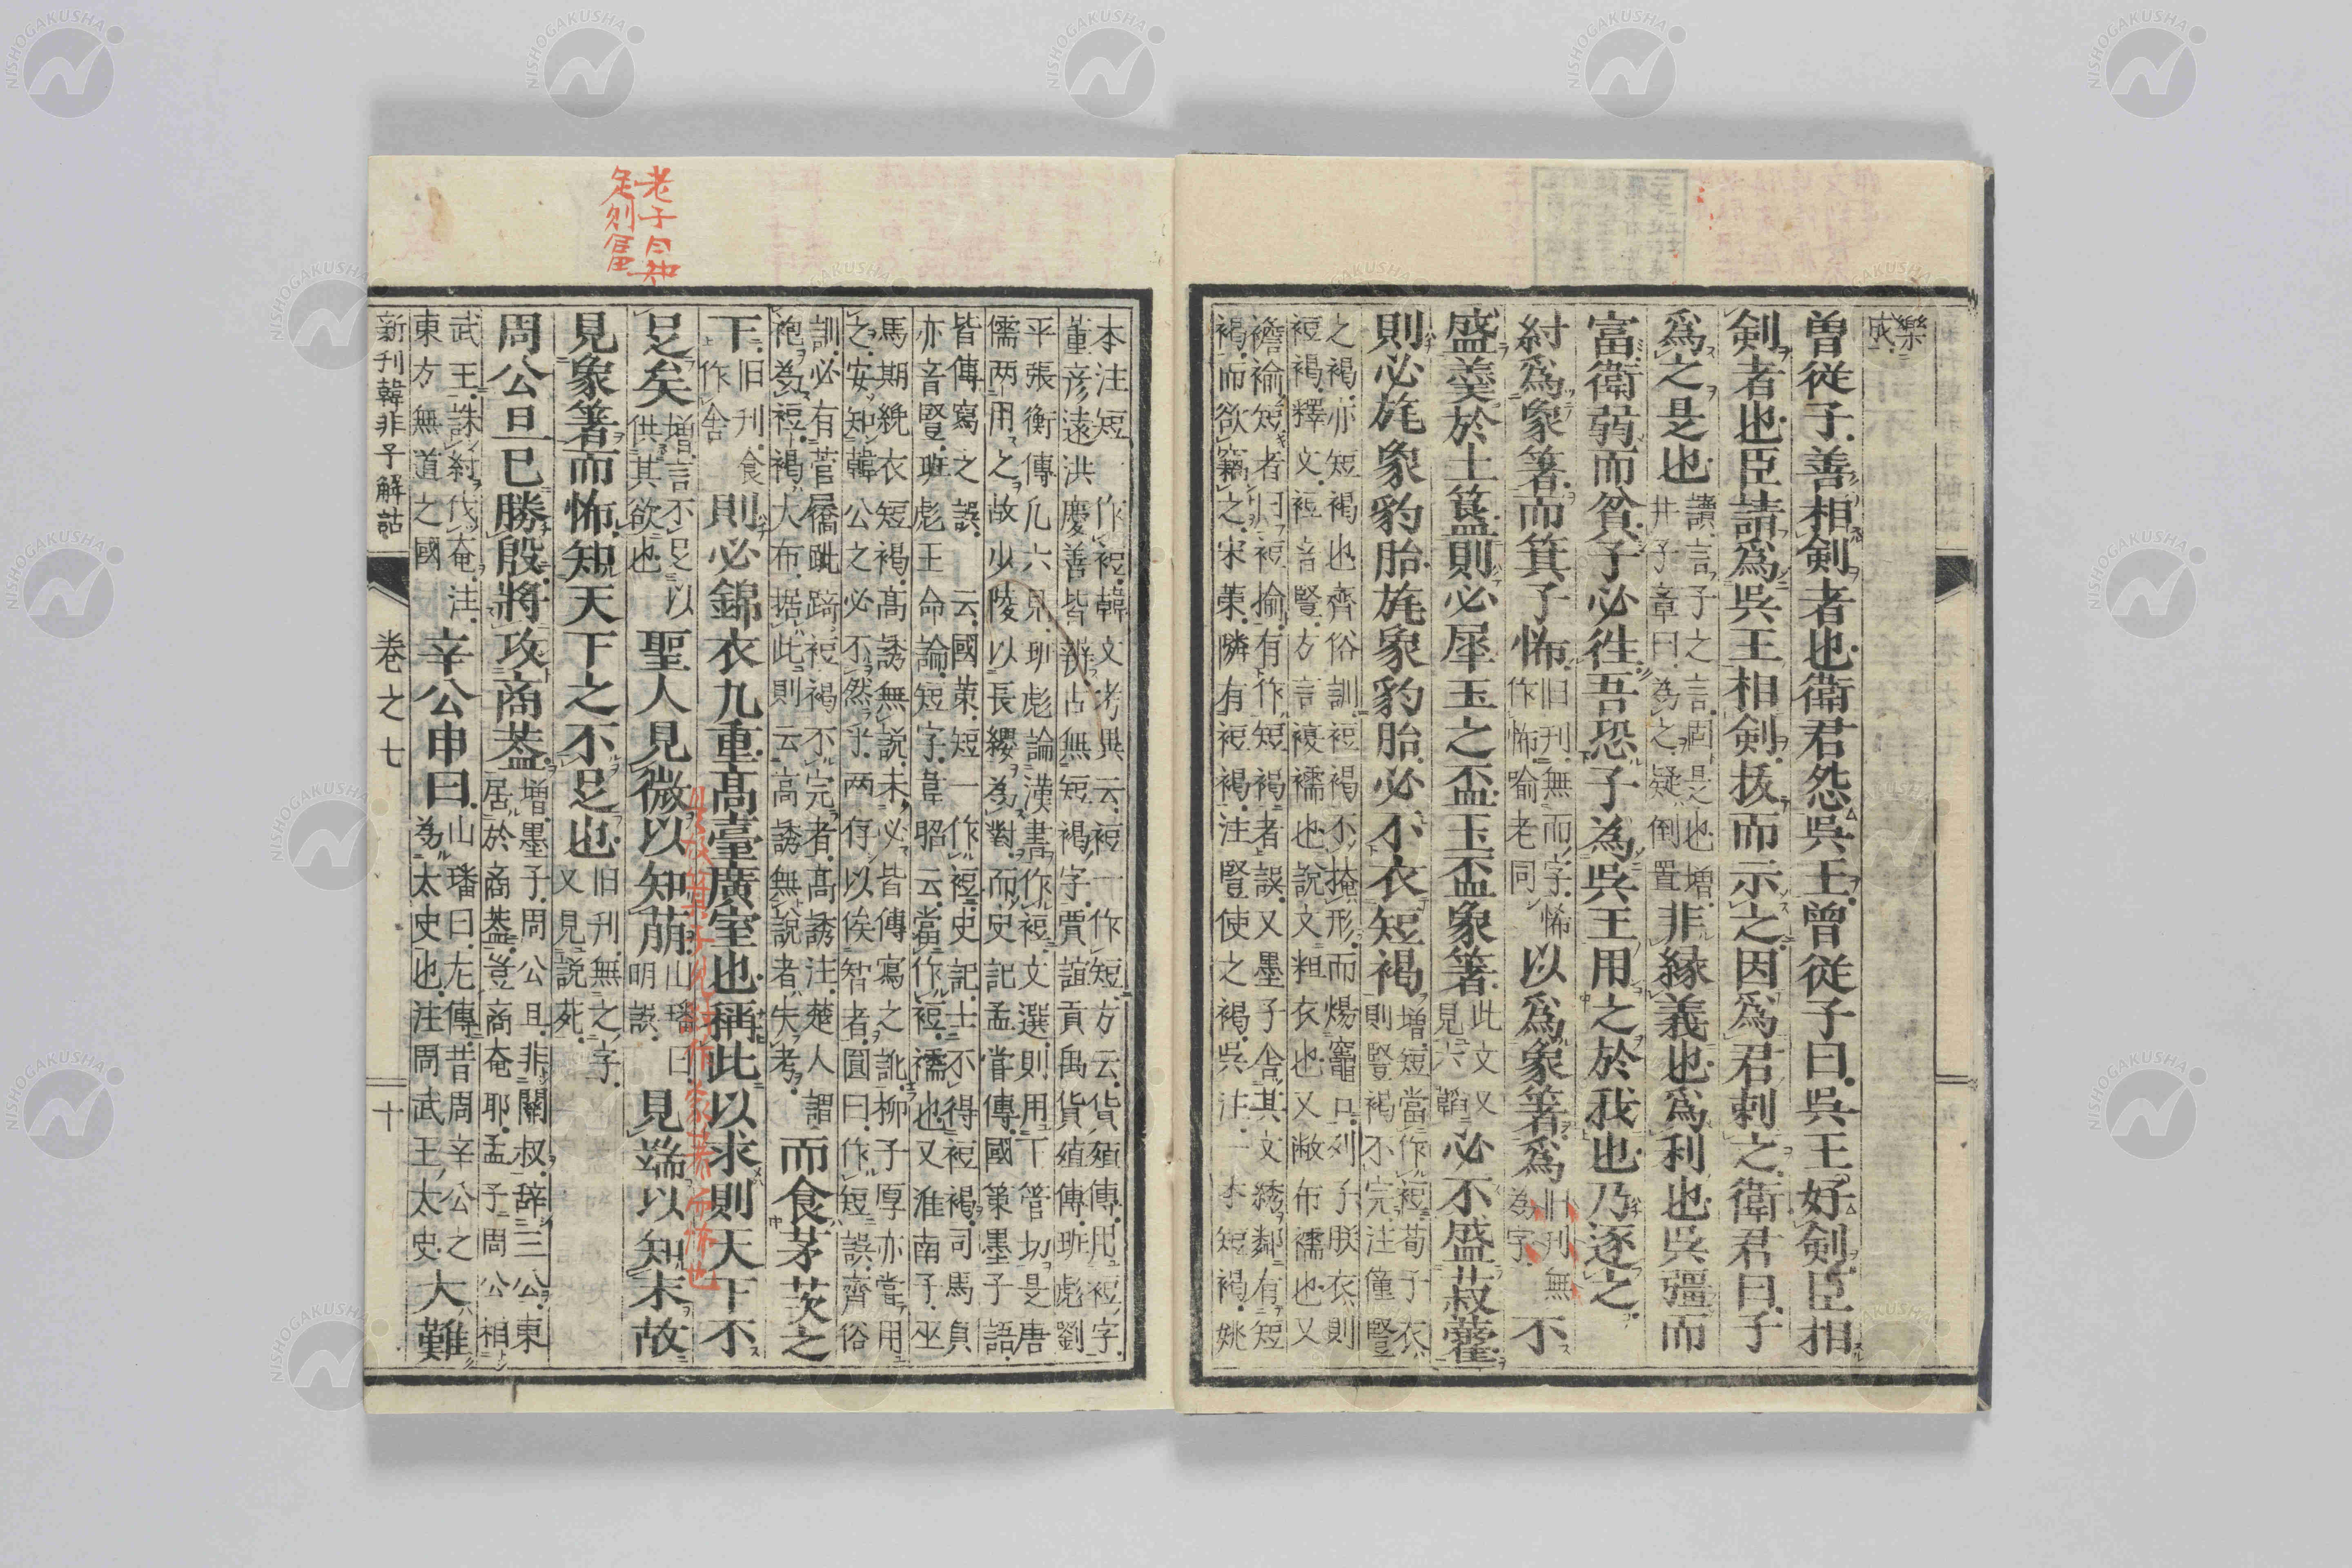 樂
成
曽從子善相剣者也衛君怨呉王曽從子曰呉王好剣臣相
剣者也臣請爲呉王相剣抜而示之因爲君刺之衛君曰子
爲之是也
讀言子之言固是也増
井子章曰為之疑倒置
非縁義也爲利也呉彊而
富衛弱而貧子必徃吾恐子為呉王用之於我也乃逐之
紂爲象箸而箕子怖
旧刊無而字怖
作怖喻老同
以爲象箸爲
旧刊無
為字
不
盛羹於土簋則必犀玉之盃玉盃象箸
此文又
見六韜
必不盛菽藿
則必旄象豹胎旄象豹胎必不衣短褐
増短當作裋荀子衣
則豎褐不完注僮豎
之褐亦短褐也齊俗訓裋褐不掩形而煬竈口列子朕衣則
裋褐釋文裋音豎方言複襦也説文粗衣也又敝布襦也又
襜褕短者曰裋褕有作短褐者誤又墨子舍其文綉鄰有短
褐而欲竊之宋策隣有裋褐注豎使之褐呉注一本短褐姚
本注短一作裋韓文考異云裋一作短方云貨殖傳用裋字
董彦遠洪慶善皆辨古無短褐字賈誼貢禹貨殖傳班彪劉
平張衡傳凡六見班彪論漢書作裋文選則用下管切是唐
儒两用之故少陵以長纓為對而史記孟嘗傳國策墨子語
皆傳寫之誤云國策短一作裋史記士不得裋褐司馬貞
亦音豎班彪王命論短字韋昭云當作裋襦也又淮南子巫
馬期絻衣短褐高誘無説未必皆傳寫之訛柳子厚亦嘗用
之安知韓公之必不然乎两存以俟智者圓曰作短誤齊俗
訓必有菅屩跐踦裋褐不完者髙誘注楚人謂
袍為裋褐大布據此則云高誘無説者失考
而食茅茨之
下
旧刊食
作舍
則必錦衣九重髙臺廣室也稱此以求則天下不
足矣
増言不足以
供其欲也
聖人見微以知萠
山璠曰
明誤
見端以知末故
見象箸而怖知天下之不足也
旧刊無之字
又見説苑
周公旦已勝殷將攻商葢
増墨子周公旦非關叔辞三公東
居於商葢豈商奄耶孟子周公相
武王誅紂伐奄注
東方無道之國
辛公申曰
山璠曰左傳昔周辛公之
為太史也注周武王太史
大難
新刊韓非子解詁
卷之七
十
老子曰知
足則富